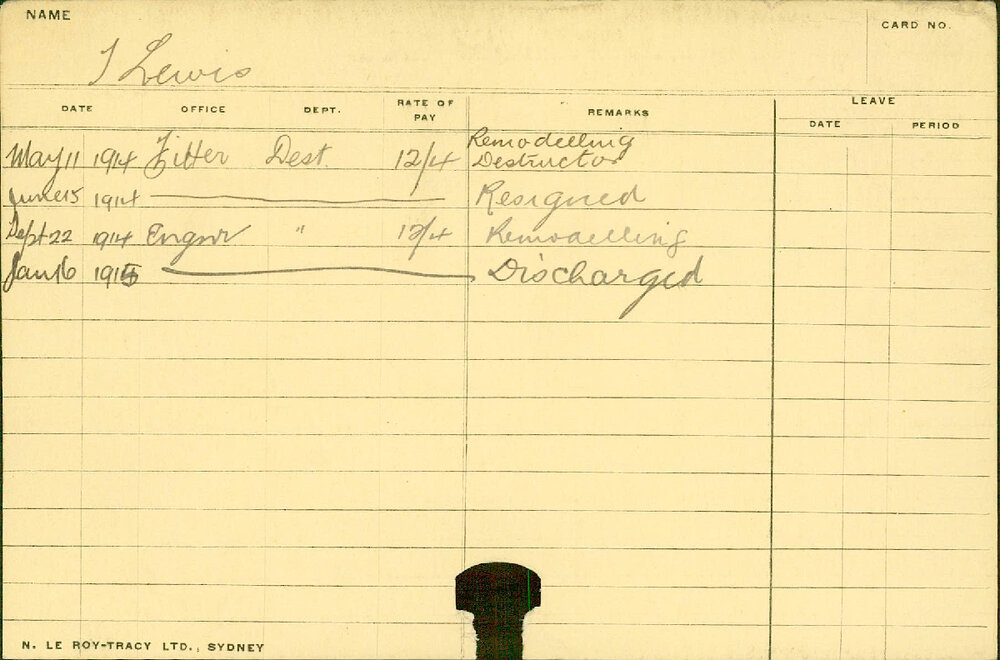 NAME
CARD NO.
J Lewis
DATE OFFICE DEPT. RATE OF PAY REMARKS LEAVE
DATE PERIOD
May 11 1914 Fitter Dest. 12/4 Remodelling Destructor
June 15 1914 Resigned
Sept 22 1914 Engnr " 12/4 Remodelling
Jan 16 1915 Discharged
N. LE ROY-TRACY LTD., SYDNEY